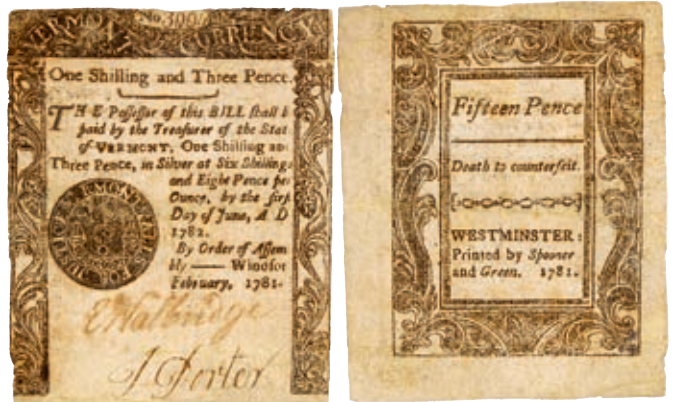 VERMONT CURRENCY.
One Shilling and Three Pence.
THE Possessor of this BILL shall b
paid by the Treasurer of the Stat
of VERMONT, One Shilling an
Three Pence, in Silver at Six Shillings
and Eight Pence per
Ounce, by the first
Day of June, A D
1782.
By Order of Assem
bly —— Windsor
February, 1781.
E Walbridge
J Porter
Fifteen Pence
Death to counterfeit.
WESTMINSTER:
Printed by Spooner
and Green. 1781.